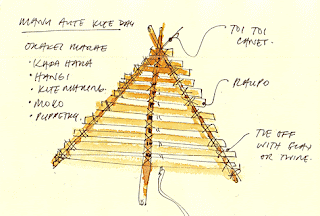 MANU AUTE KITE DAY
ORAKEI MARAE
• KAPA HAKA
• HANGI
• KITE MAKING.
• MOKO
• PUPPETRY.
TOI TOI
CANE.
RAUPO
TIE OFF
WITH FLAX
OR TWINE.